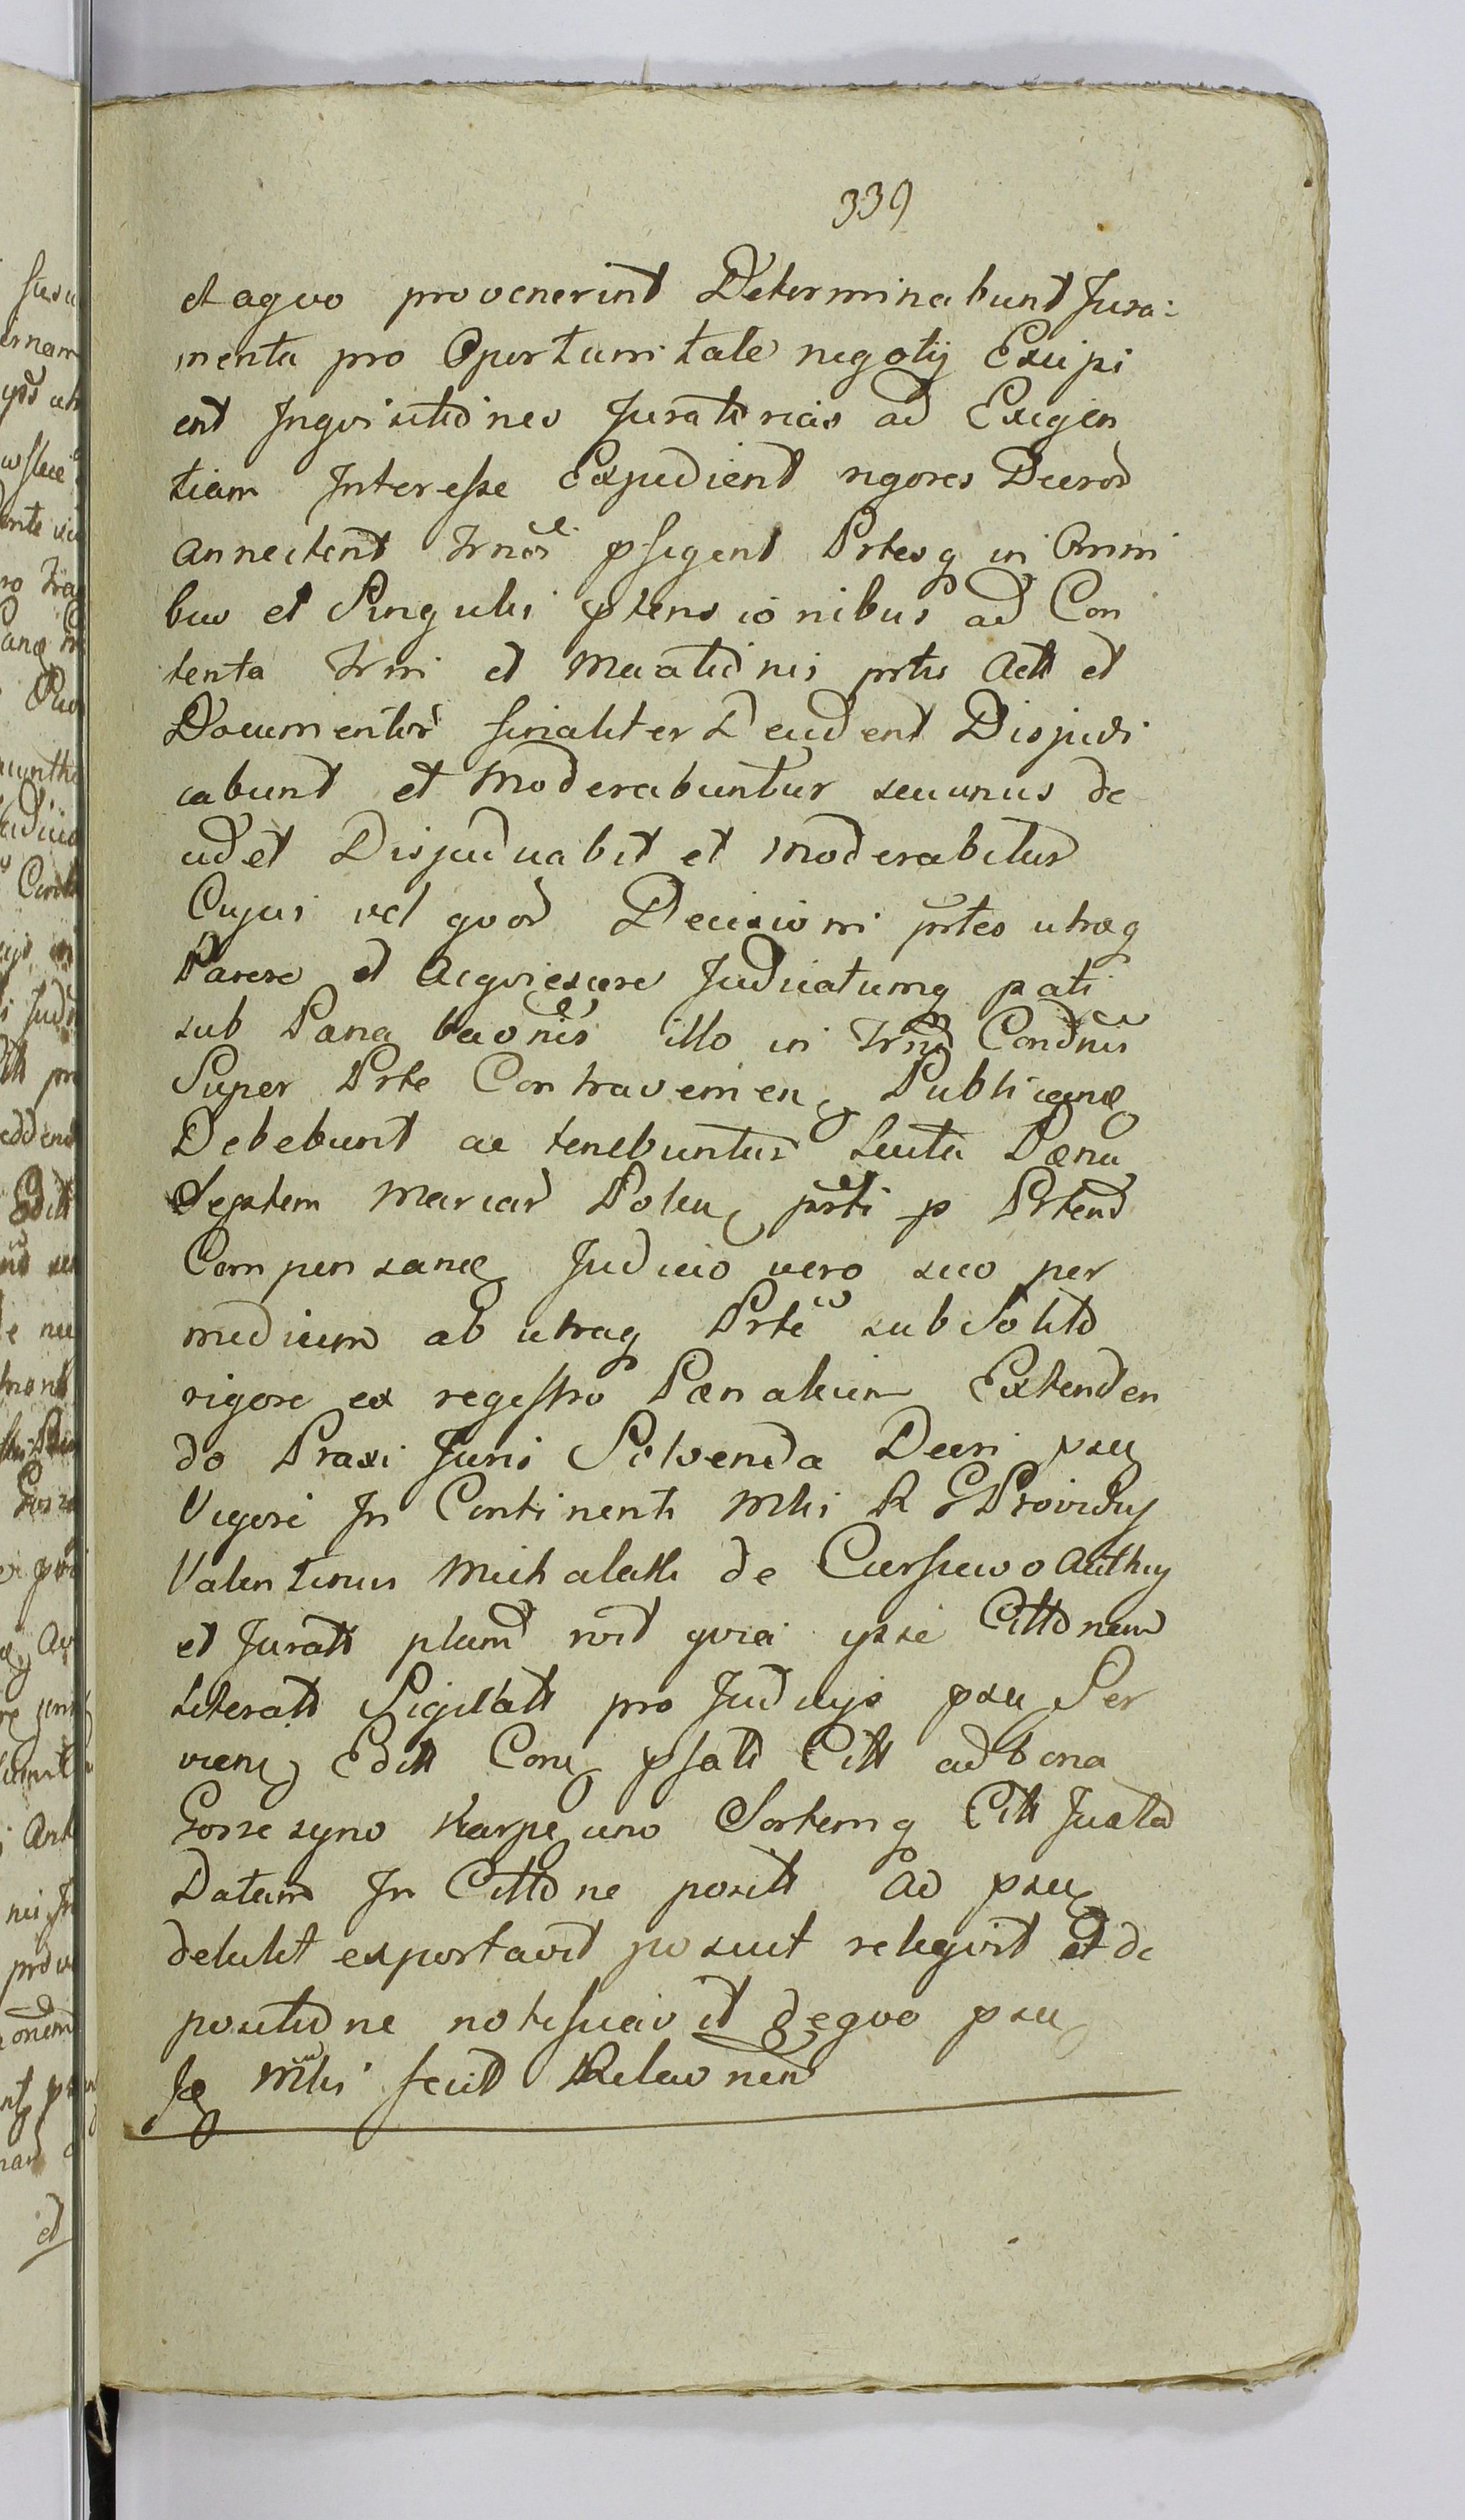 339
et aqvo provenerint Determinabunt Jura:
menta pro Oportunitate negotij Excipi
ent Inqvisitiones Juratorias ad Exigen
tiam Interesse Expedient rigores Decrod
annectent Trnos pfigent Prtesq in Omni
bus et Singulis ptensionibus ad Con
tenta Trmi et meatidnis prtis Actt et
Documentor finaliter Decident Disjudi
cabunt et Moderabuntur seu unus de
cidet Disjudicabit et moderabitur
Cujus vel qvod Decisioni prtes utraq
Parere et Acqviescere Judicatumq pati
sub Pæna baonis illo in Trmo Condnis
Super Prte Contravenien Publicanæ
Debebunt ac tenebuntur Secuta Pæna
Septem Marcar Polca prti p Prtend
Compensanæ Judicio vero suo per
medium ab utraq Prte sub Solito
rigore ex regestro Pænalium Extenden
do Praxi Juris Solvenda Decri psu
Vigore In Continenti Mtri R G Providus
Valentinus Michalak de Cerfiewo Auttus
et Juratt planu rvit qvia ipse Cittdnem
literatt Sigillatt pro Judicijs psu Ser
vien Editt Conu psatt Citt ad bona
Gorzeszyno Karpewo Sortemq Citt Juxta
Datum In Cittdne positt Ad psu
detulit exportavit posuit reliqvit et de
positidne notificavit deqvo psu
se Mtri fecit Relaonem